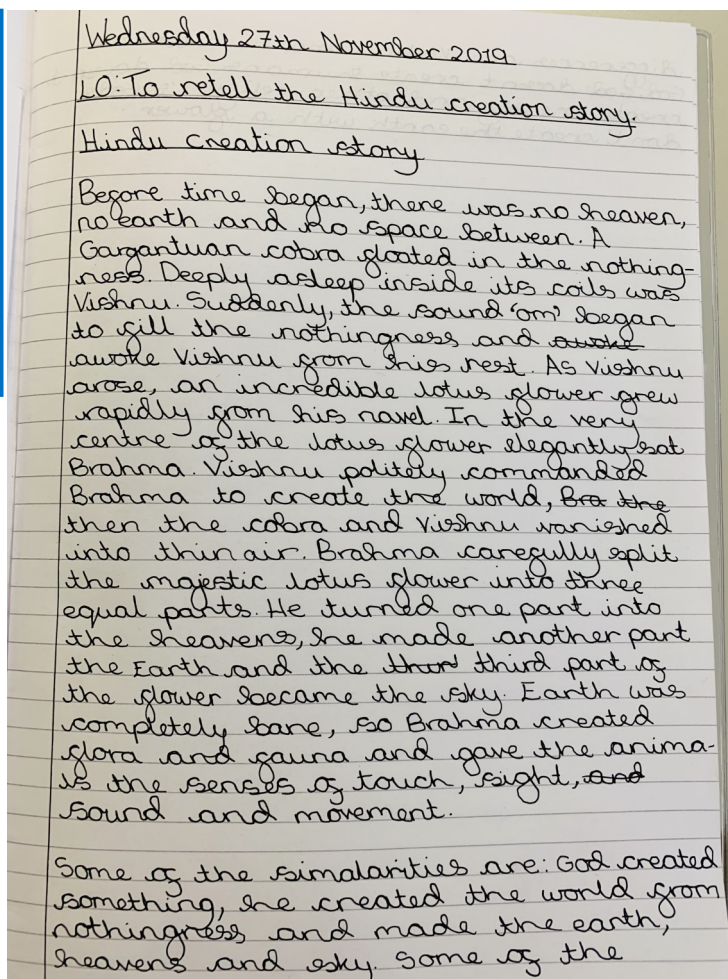 Wednesday 27th November 2019
LO: To retell the Hindu creation story.
Hindu creation story
Before time began, there was no heaven,
no earth and no space between. A
Gargantuan cobra floated in the nothing-
ness. Deeply asleep inside its coils was
Vishnu. Suddenly, the sound 'om' began
to fill the nothingness and awoke
awoke Vishnu from his rest. As Vishnu
arose, an incredible lotus flower grew
rapidly from his navel. In the very
centre of the lotus flower elegantly sat
Brahma. Vishnu politely commanded
Brahma to create the world, Bra the
then the cobra and Vishnu vanished
into thin air. Brahma carefully split
the majestic lotus flower into three
equal parts. He turned one part into
the heavens, he made another part
the Earth and the third third part of
the flower became the sky. Earth was
completely bare, so Brahma created
flora and fauna and gave the anima-
ls the senses of touch, sight, and
sound and movement.
Some of the simalarities are: God created
something, he created the world from
nothingness and made the earth,
heavens and sky. Some of the